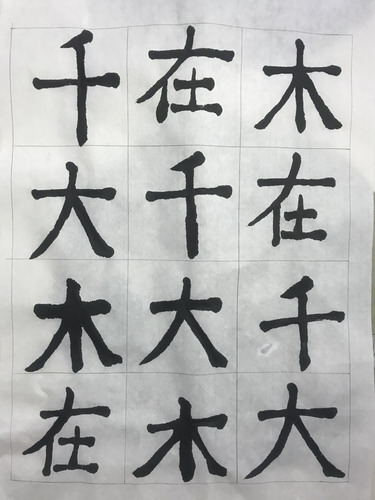 千在木
大千在
木大千
在木大